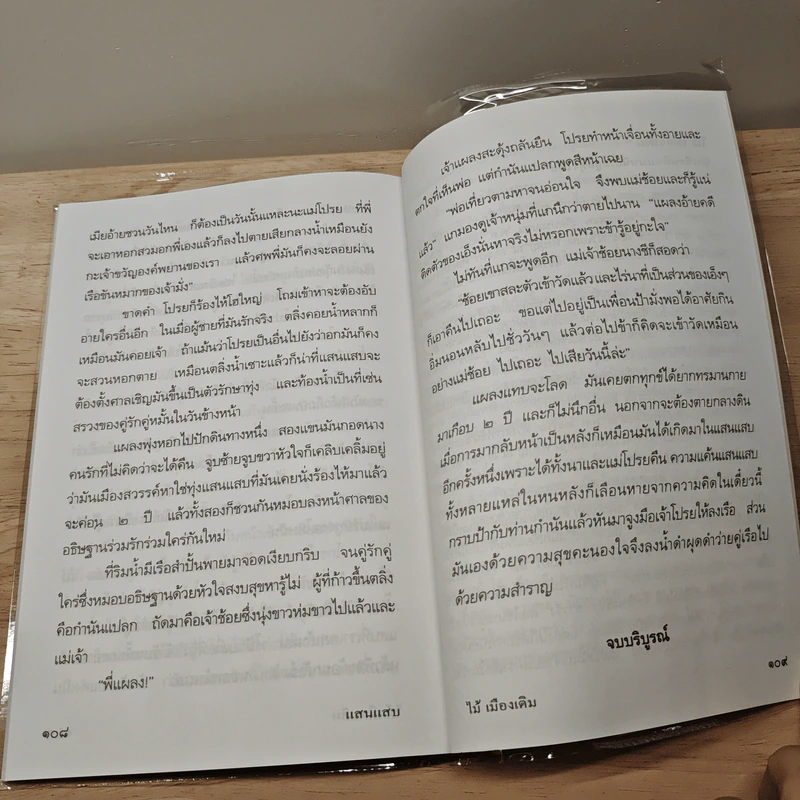 เมียอ้ายชวนวันไหน ก็ต้องเป็นวันนั้นแหละนะแม่โปรย ที่พี่
จะเอาหอกสวมอกพี่เองแล้วก็ลงไปตายเสียกลางน้ำเหมือนยัง
กะเจ้าขวัญองค์พยานของเรา แล้วศพพี่มันก็คงจะลอยผ่าน
เรือขันหมากของเจ้ามั่ง”
ขาดคำ โปรยก็ร้องไห้โฮใหญ่ โถมเข้าหาจะต้องอับ
อายใครอื่นอีก ในเมื่อผู้ชายที่มันรักจริง ตลิ่งคอยน้ำหลากก็
เหมือนมันคอยเจ้า ถ้าแม้นว่าโปรยเป็นอื่นไปยังว่าอกมันก็คง
จะสวนหอกตาย เหมือนตลิ่งน้ำเซาะแล้วก็น่าที่แสนแสบจะ
ต้องตั้งศาลเชิญมันขึ้นเป็นตัวรักษาทุ่ง และท้องน้ำเป็นที่เซ่น
สรวงของคู่รักคู่หมั้นในวันข้างหน้า
แผลงพุ่งหอกไปปักดินทางหนึ่ง สองแขนมันกอดนาง
คนรักที่ไม่คิดว่าจะได้คืน จูบซ้ายจูบขวาหัวใจก็เคลิบเคลิ้มอยู่
ว่ามันเมืองสวรรค์หาใช่ทุ่งแสนแสบที่มันเคยนั่งร้องไห้มาแล้ว
จะค่อน ๒ ปี แล้วทั้งสองก็ชวนกันหมอบลงหน้าศาลของ
อธิษฐานร่วมรักร่วมใคร่กันใหม่
ที่ริมน้ำมีเรือสำปั้นพายมาจอดเงียบกริบ จนคู่รักคู่
ใคร่ซึ่งหมอบอธิษฐานด้วยหัวใจสงบสุขหารู้ไม่ ผู้ที่ก้าวขึ้นตลิ่ง
คือกำนันแปลก ถัดมาคือเจ้าช้อยซึ่งนุ่งขาวห่มขาวไปแล้วและ
แม่เจ้า
“พี่แผลง!”
แสนแสบ
๑๐๘
เจ้าแผลงสะดุ้งถลันยืน โปรยทำหน้าเจื่อนทั้งอายและ
ตกใจที่เห็นพ่อ แต่กำนันแปลกพูดสีหน้าเฉย
“พ่อเที่ยวตามหาจนอ่อนใจ จึงพบแม่ช้อยและก็รู้แน่
แล้ว” แกมองดูเจ้าหนุ่มที่แกนึกว่าตายไปนาน “แผลงอ้ายคดี
ติดตัวของเอ็งนั่นหาจริงไม่หรอกเพราะข้ารู้อยู่กะใจ”
ไม่ทันที่แกจะพูดอีก แม่เจ้าช้อยนางชีก็สอดว่า
“ช้อยเขาสละตัวเข้าวัดแล้ว และไร่นาที่เป็นส่วนของเอ็งๆ
ก็เอาคืนไปเถอะ ขอแต่ไปอยู่เป็นเพื่อนป้ามั่งพอได้อาศัยกิน
อิ่มนอนหลับไปชั่ววันๆ แล้วต่อไปข้าก็คิดจะเข้าวัดเหมือน
อย่างแม่ช้อย ไปเถอะ ไปเสียวันนี้ล่ะ”
แผลงแทบจะโลด มันเคยตกทุกข์ได้ยากทรมานกาย
มาเกือบ ๒ ปี และก็ไม่นึกอื่น นอกจากจะต้องตายกลางดิน
เมื่อการมากลับหน้าเป็นหลังก็เหมือนมันได้เกิดมาในแสนแสบ
อีกครั้งหนึ่งเพราะได้ทั้งนาและแม่โปรยคืน ความแค้นแสนแสบ
ทั้งหลายแหล่ในหนหลังก็เลือนหายจากความคิดในเดี๋ยวนี้
กราบป้ากับท่านกำนันแล้วหันมาจูงมือเจ้าโปรยให้ลงเรือ ส่วน
มันเองด้วยความสุขคะนองใจจึงลงน้ำดำผุดดำว่ายคู่เรือไป
ด้วยความสำราญ
จบบริบูรณ์
๑๐๙
ไม้ เมืองเดิม